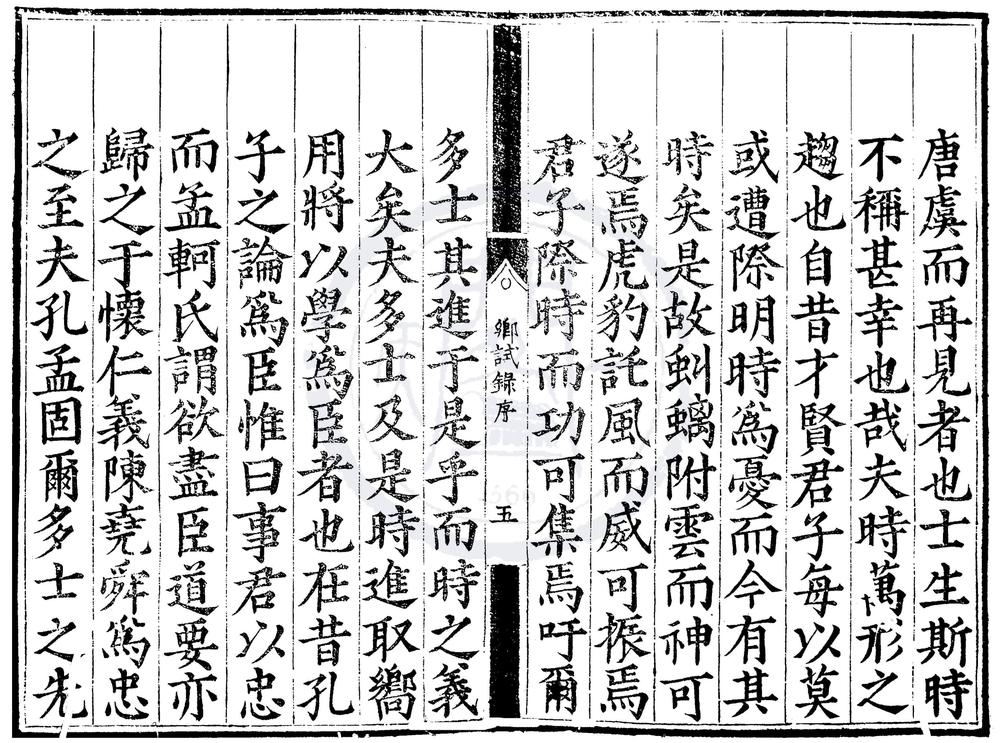 唐虞而再見者也士生斯時
不稱甚幸也哉夫時萬形之
趨也自昔才賢君子每以莫
或遭際明時爲憂而今有其
時矣是故虯螭附雲而神可
遂焉虎豹託風而威可振焉
君子際時而功可集焉吁爾
鄉試錄序
五
多士其進于是乎而時之義
大矣夫多士及是時進取嚮
用將以學爲臣者也在昔孔
子之論爲臣惟曰事君以忠
而孟軻氏謂欲盡臣道要亦
歸之于懷仁義陳堯舜爲忠
之至夫孔孟固爾多士之先